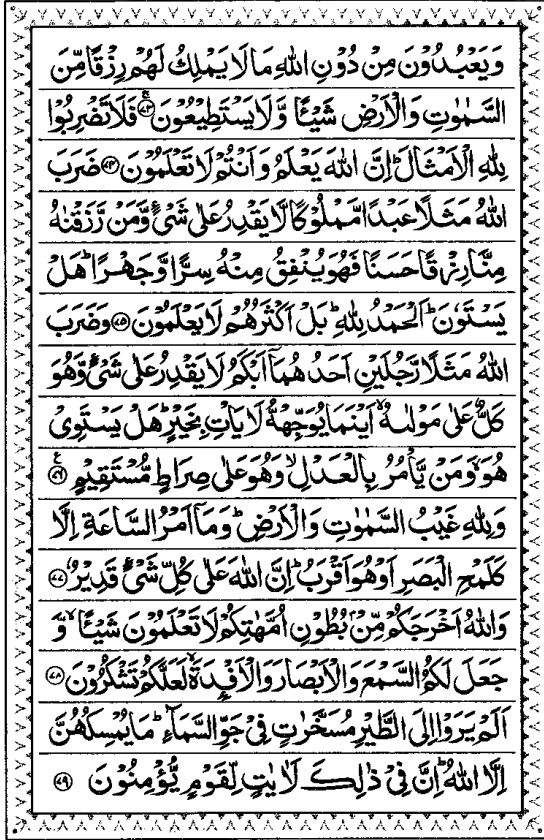 وَيَعْبُدُوْنَ مِنْ دُوْنِ اللّٰهِ مَا لَا يَمْلِكُ لَهُمْ رِزْقًا مِّنَ
السَّمٰوٰتِ وَالْاَرْضِ شَيْـًٔا وَّلَا يَسْتَطِيْعُوْنَ ۚ﴿۷۳﴾ فَلَا تَضْرِبُوْا
لِلّٰهِ الْاَمْثَالَ ؕ اِنَّ اللّٰهَ يَعْلَمُ وَاَنْتُمْ لَا تَعْلَمُوْنَ ﴿۷۴﴾ ضَرَبَ
اللّٰهُ مَثَلًا عَبْدًا مَّمْلُوْكًا لَّا يَقْدِرُ عَلٰى شَىْءٍ وَّمَنْ رَّزَقْنٰهُ
مِنَّا رِزْقًا حَسَنًا فَهُوَ يُنْفِقُ مِنْهُ سِرًّا وَّجَهْرًا ؕ هَلْ
يَسْتَوٗنَ ؕ اَلْحَمْدُ لِلّٰهِ ؕ بَلْ اَكْثَرُهُمْ لَا يَعْلَمُوْنَ ﴿۷۵﴾ وَضَرَبَ
اللّٰهُ مَثَلًا رَّجُلَيْنِ اَحَدُهُمَاۤ اَبْكَمُ لَا يَقْدِرُ عَلٰى شَىْءٍ وَّهُوَ
كَلٌّ عَلٰى مَوْلٰىهُ ۙ اَيْنَمَا يُوَجِّهْهُّ لَا يَاْتِ بِخَيْرٍ ؕ هَلْ يَسْتَوِىْ
هُوَ ۙ وَمَنْ يَّاْمُرُ بِالْعَدْلِ ۙ وَهُوَ عَلٰى صِرَاطٍ مُّسْتَقِيْمٍ ﴿۷۶﴾
وَلِلّٰهِ غَيْبُ السَّمٰوٰتِ وَالْاَرْضِ ؕ وَمَاۤ اَمْرُ السَّاعَةِ اِلَّا
كَلَمْحِ الْبَصَرِ اَوْ هُوَ اَقْرَبُ ؕ اِنَّ اللّٰهَ عَلٰى كُلِّ شَىْءٍ قَدِيْرٌ ﴿۷۷﴾
وَاللّٰهُ اَخْرَجَكُمْ مِّنْۢ بُطُوْنِ اُمَّهٰتِكُمْ لَا تَعْلَمُوْنَ شَيْـًٔا ۙ وَّ
جَعَلَ لَكُمُ السَّمْعَ وَالْاَبْصَارَ وَالْاَفْـِٕدَةَ ۙ لَعَلَّكُمْ تَشْكُرُوْنَ ﴿۷۸﴾
اَلَمْ يَرَوْا اِلَى الطَّيْرِ مُسَخَّرٰتٍ فِىْ جَوِّ السَّمَآءِ ؕ مَا يُمْسِكُهُنَّ
اِلَّا اللّٰهُ ؕ اِنَّ فِىْ ذٰلِكَ لَاٰيٰتٍ لِّقَوْمٍ يُّؤْمِنُوْنَ ﴿۷۹﴾